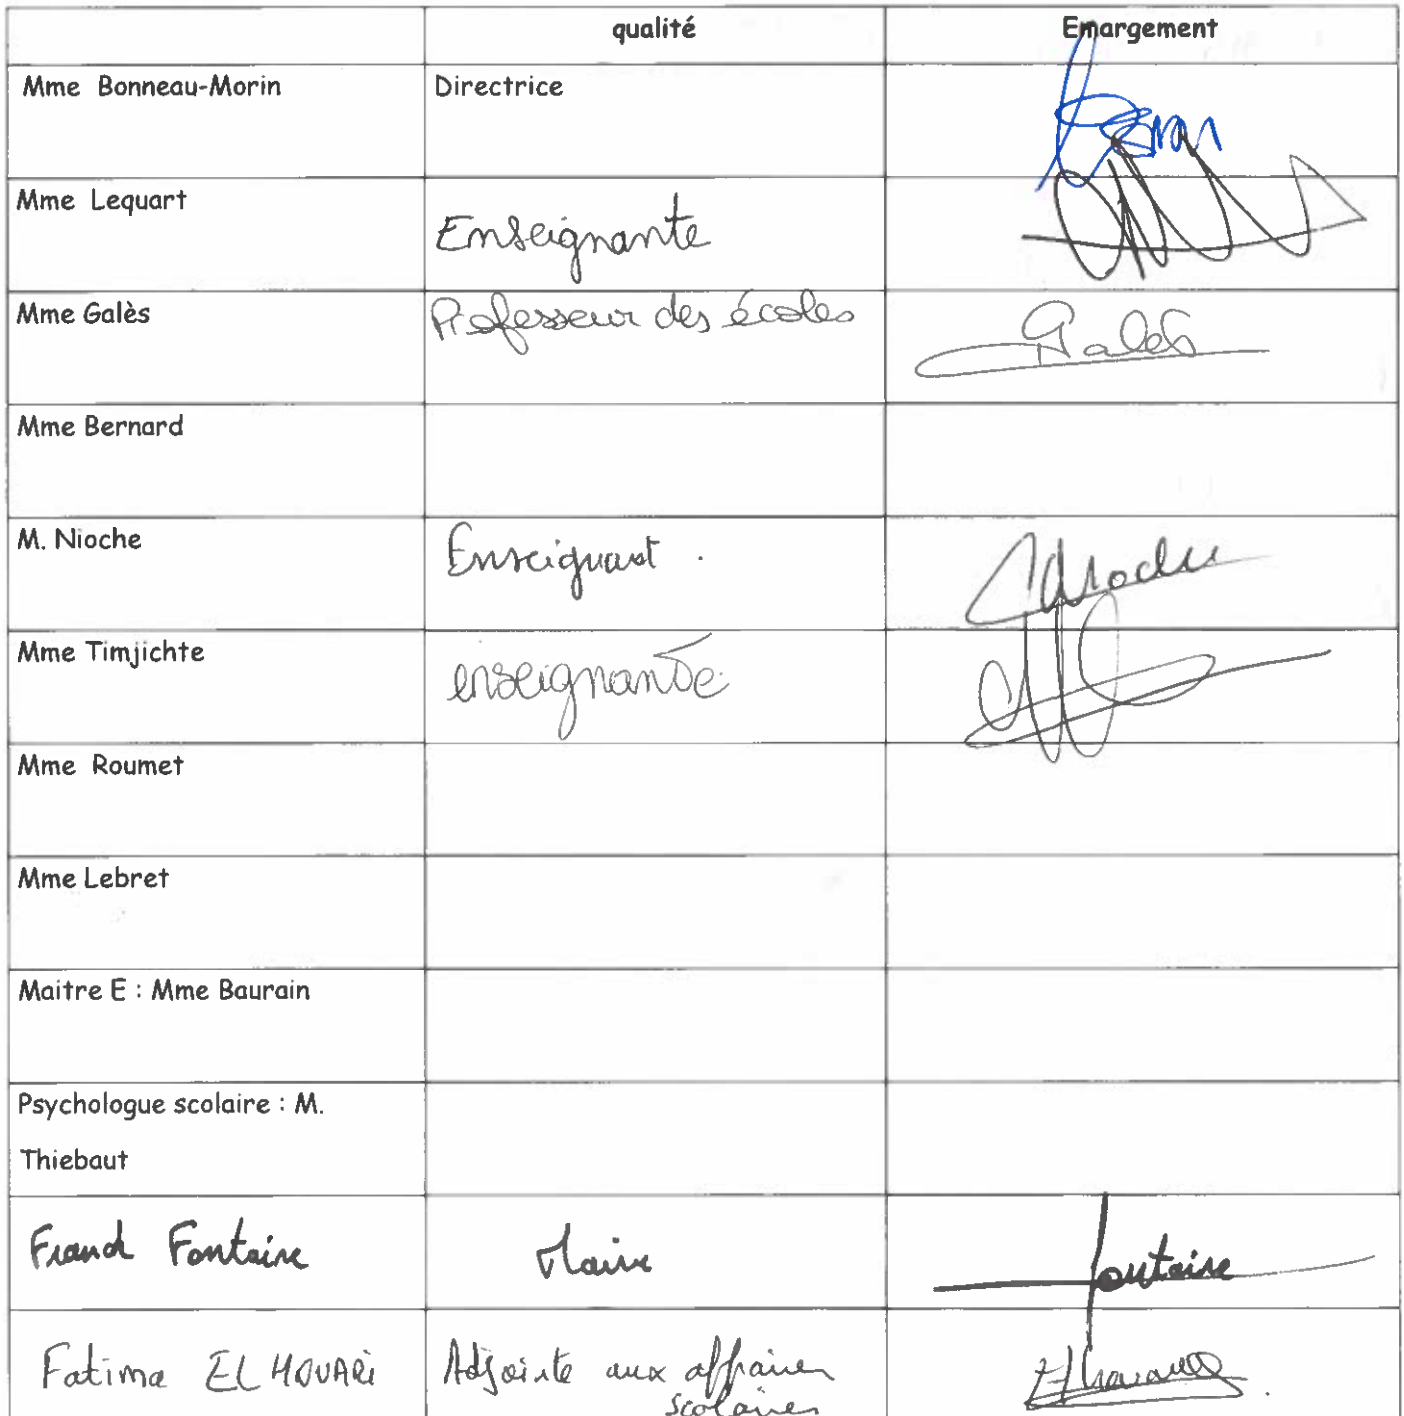 qualité Emargement
Mme Bonneau-Morin Directrice
Mme Lequart Enseignante
Mme Galès Professeur des écoles Galès
Mme Bernard
M. Nioche Enseignant . Nioche
Mme Timjichte enseignante
Mme Roumet
Mme Lebret
Maitre E : Mme Baurain
Psychologue scolaire : M.
Thiebaut
Franck Fontaine Maire Fontaine
Fatima EL HOUARI Adjointe aux affaires
scolaires